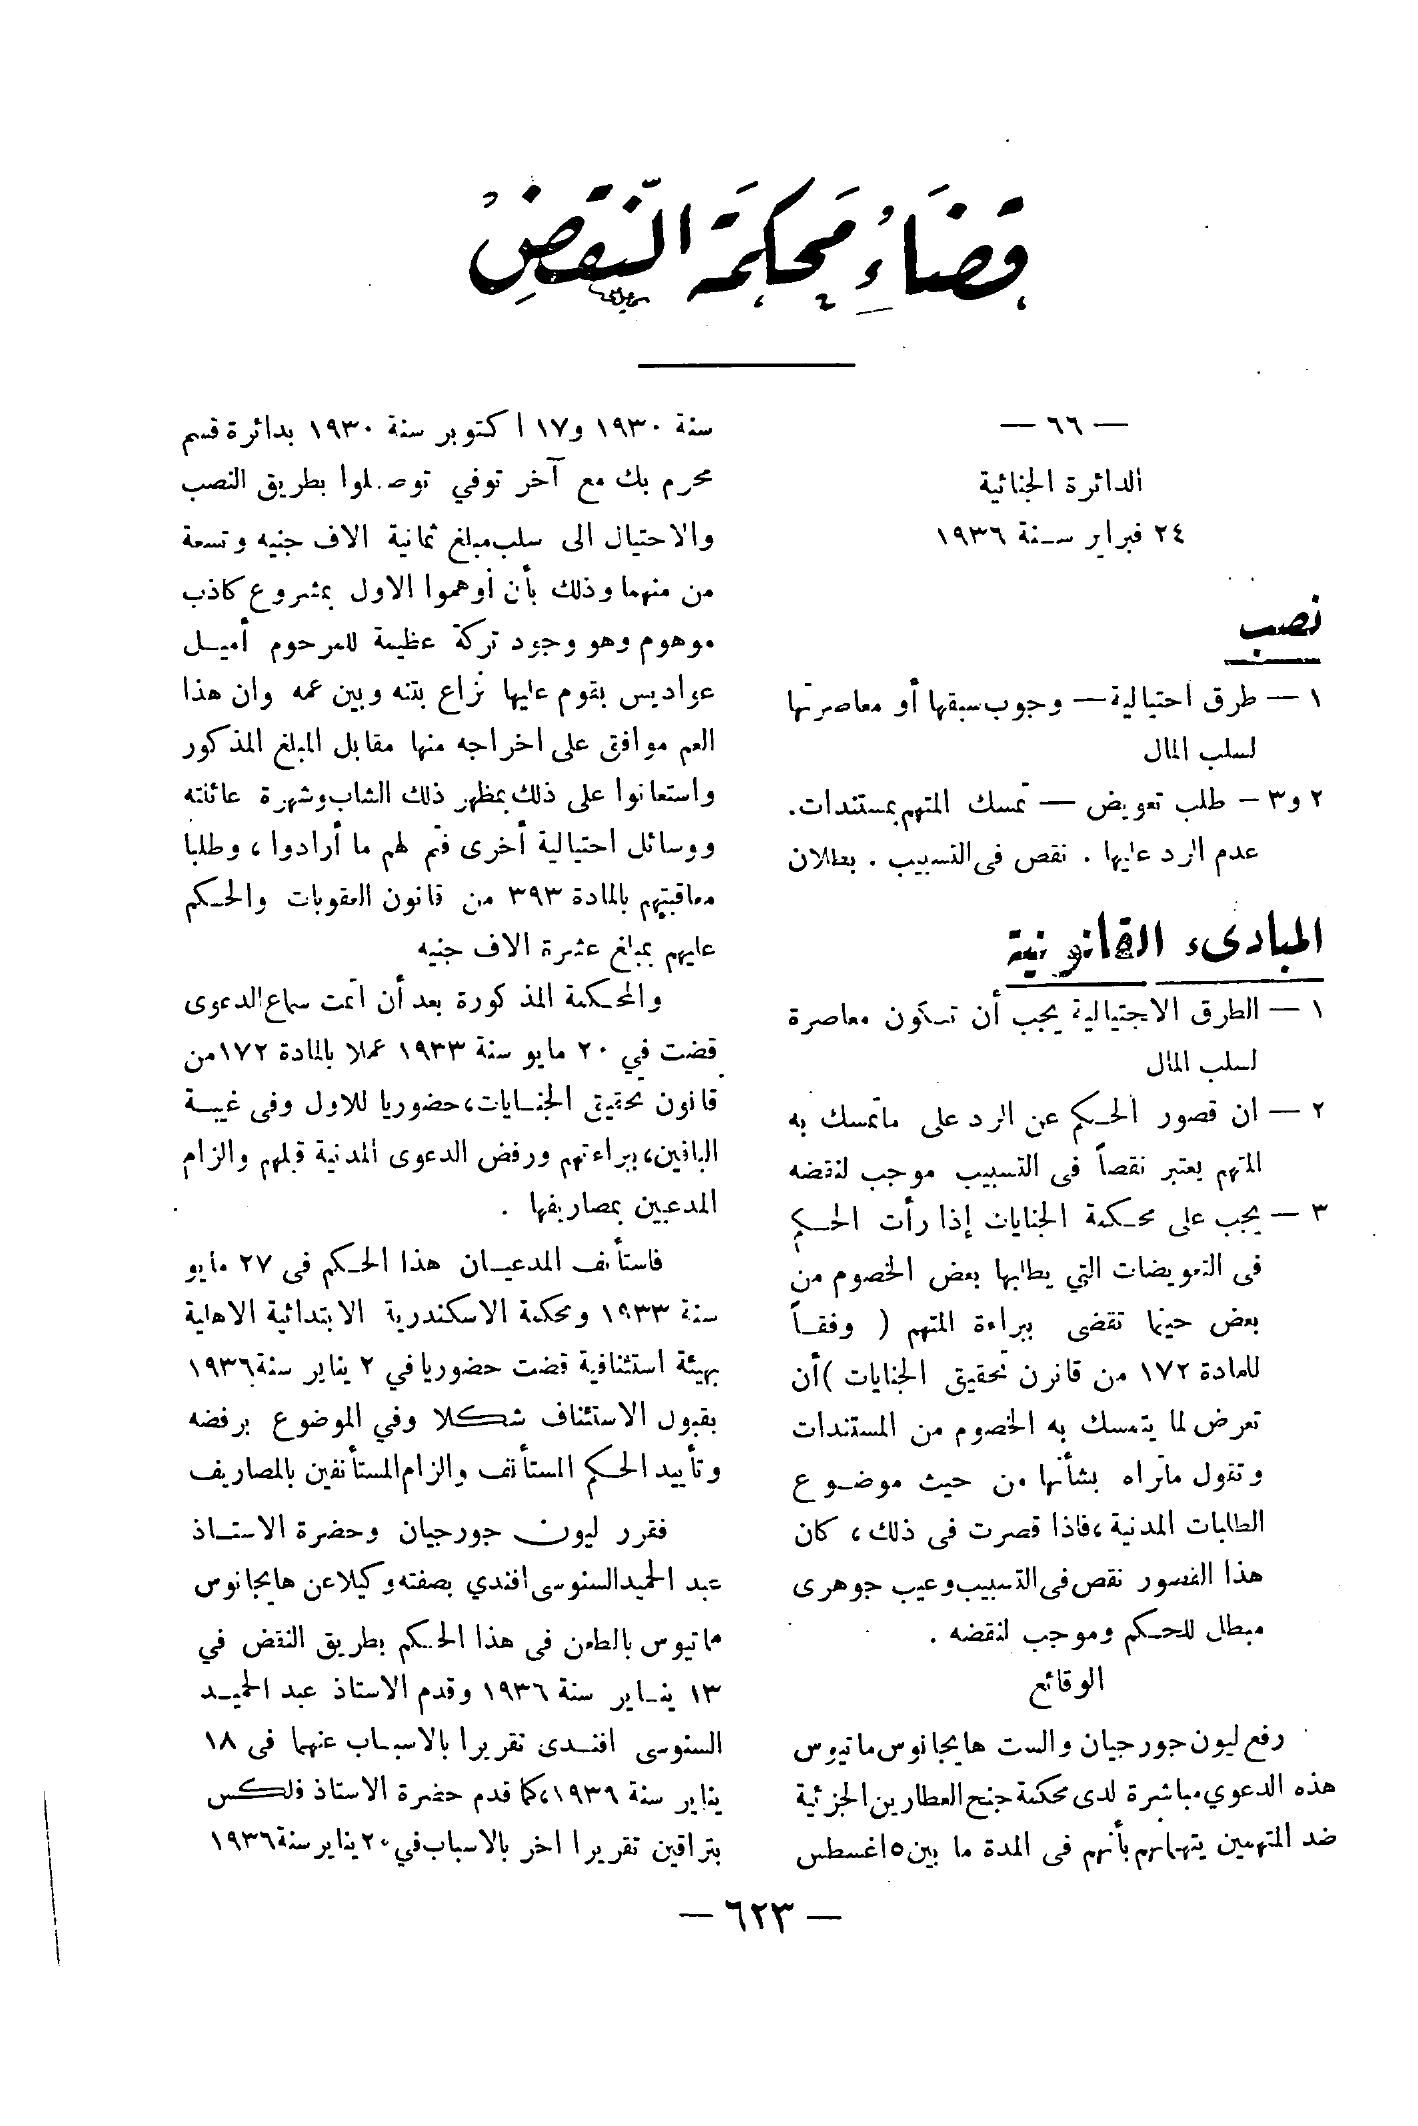 قضاء محكمة النقض
— ٦٦ —
الدائرة الجنائية
٢٤ فبراير سنة ١٩٣٦
نصب
١ — طرق احتيالية — وجوب سبقها أو معاصرتها
لسلب المال
٢ و٣ — طلب تعويض — تمسك المتهم بمستندات.
عدم الرد عليها . نقص فى التسبيب . بطلان
المبادىء القانونية
١ — الطرق الاحتيالية يجب أن تكون معاصرة
لسلب المال
٢ — ان قصور الحكم عن الرد على ماتمسك به
المتهم يعتبر نقصاً فى التسبيب موجب لنقضه
٣ — يجب على محكمة الجنايات إذا رأت الحكم
فى التعويضات التي يطلبها بعض الخصوم من
بعض حينما تقضى ببراءة المتهم ( وفقاً
للمادة ١٧٢ من قانون تحقيق الجنايات ) أن
تعرض لما يتمسك به الخصوم من المستندات
وتقول ماتراه بشأنها من حيث موضوع
الطلبات المدنية ، فاذا قصرت فى ذلك ، كان
هذا القصور نقص فى التسبيب وعيب جوهرى
مبطل للحكم وموجب لنقضه .
الوقائع
رفع ليون جورجيان والست هايجانوس ماتيوس
هذه الدعوي مباشرة لدى محكمة جنح العطارين الجزئية
ضد المتهمين يتهمانهم بأنهم فى المدة ما بين ٥ اغسطس
سنة ١٩٣٠ و١٧ اكتوبر سنة ١٩٣٠ بدائرة قسم
محرم بك مع آخر توفي توصلوا بطريق النصب
والاحتيال الى سلب مبلغ ثمانية الاف جنيه وتسعة
من منهما وذلك بأن أوهموا الاول بمشروع كاذب
موهوم وهو وجود تركة عظيمة للمرحوم أميل
عواديس يقوم عليها نزاع بتنه وبين عمه وان هذا
العم موافق على اخراجه منها مقابل المبلغ المذكور
واستعانوا على ذلك بمظهر ذلك الشاب وشهرة عائلته
ووسائل احتيالية أخرى فتم لهم ما أرادوا ، وطلبا
معاقبتهم بالمادة ٣٩٣ من قانون العقوبات والحكم
عليهم بمبلغ عشرة الاف جنيه
والمحكمة المذكورة بعد أن اتمت سماع الدعوى
قضت في ٢٠ مايو سنة ١٩٣٣ عملا بالمادة ١٧٢ من
قانون تحقيق الجنايات، حضوريا للاول وفى غيبة
الباقين، ببراءتهم ورفض الدعوى المدنية قبلهم والزام
المدعيين بمصاريفها .
فاستأنف المدعيان هذا الحكم فى ٢٧ مايو
سنة ١٩٣٣ ومحكمة الاسكندرية الابتدائية الاهلية
بهيئة استئنافية قضت حضوريا في ٢ يناير سنة ١٩٣٦
بقبول الاستئناف شكلا وفي الموضوع برفضه
وتأييد الحكم المستأنف والزام المستأنفين بالمصاريف
فقرر ليون جورجيان وحضرة الاستاذ
عبد الحميد السنوسى افندي بصفته وكيلا عن هايجانوس
ماتيوس بالطعن فى هذا الحكم بطريق النقض في
١٣ يناير سنة ١٩٣٦ وقدم الاستاذ عبد الحميد
السنوسى افندى تقريرا بالاسباب عنهما فى ١٨
يناير سنة ١٩٣٦، كما قدم حضرة الاستاذ فلكس
بتراقين تقريرا اخر بالاسباب في ٢٠ يناير سنة ١٩٣٦
— ٦٢٣ —